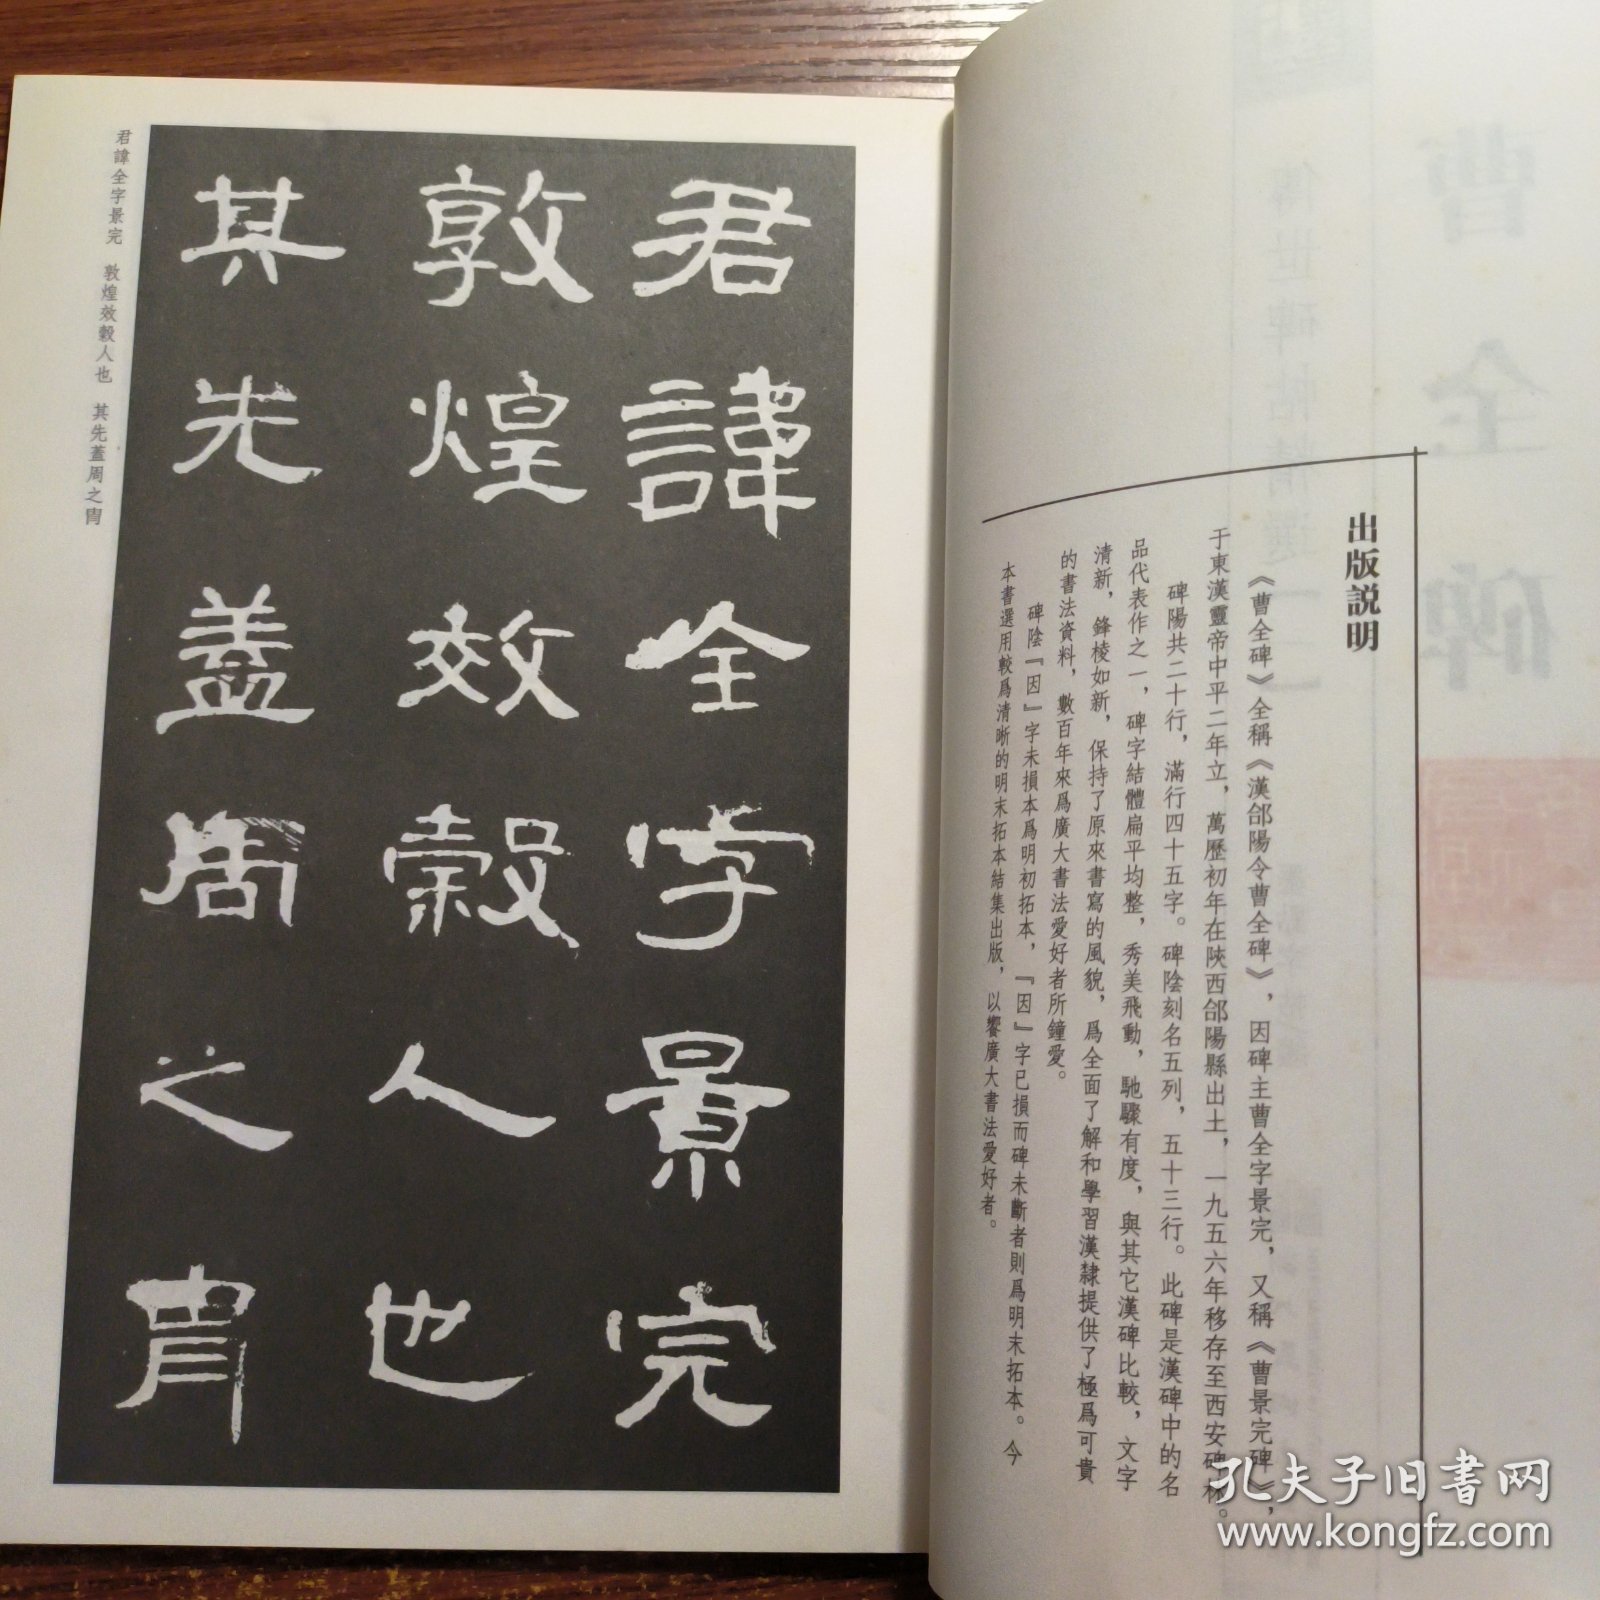 出版説明
《曹全碑》全稱《漢郃陽令曹全碑》，因碑主曹全字景完，又稱《曹景完碑》，
于東漢靈帝中平二年立，萬歷初年在陝西郃陽縣出土，一九五六年移存至西安碑林。
碑陽共二十行，滿行四十五字。碑陰刻名五列，五十三行。此碑是漢碑中的名
品代表作之一，碑字結體扁平均整，秀美飛動，馳驟有度，與其它漢碑比較，文字
清新，鋒棱如新，保持了原來書寫的風貌，爲全面了解和學習漢隸提供了極爲可貴
的書法資料，數百年來爲廣大書法愛好者所鐘愛。
碑陰『因』字未損本爲明初拓本，『因』字已損而碑未斷者則爲明末拓本。今
本書選用較爲清晰的明末拓本結集出版，以饗廣大書法愛好者。
君諱全字景完
敦煌效穀人也
其先蓋周之胄
君諱全字景完　敦煌效穀人也　其先蓋周之胄
曹全碑
傳世碑帖精選
孔夫子旧书网
www.kongfz.com